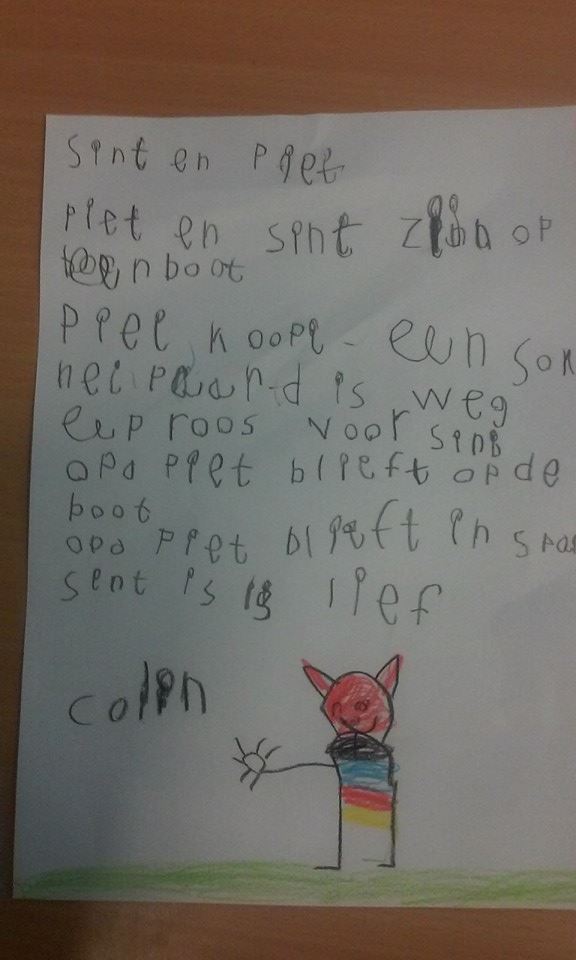 sint en piet
piet en sint zijn op
eenboot
piet koopt een
het paard is weg
eep roos voor sint
opa piet blieft op de
boot
opa piet blieft in
sent is is lief
colin